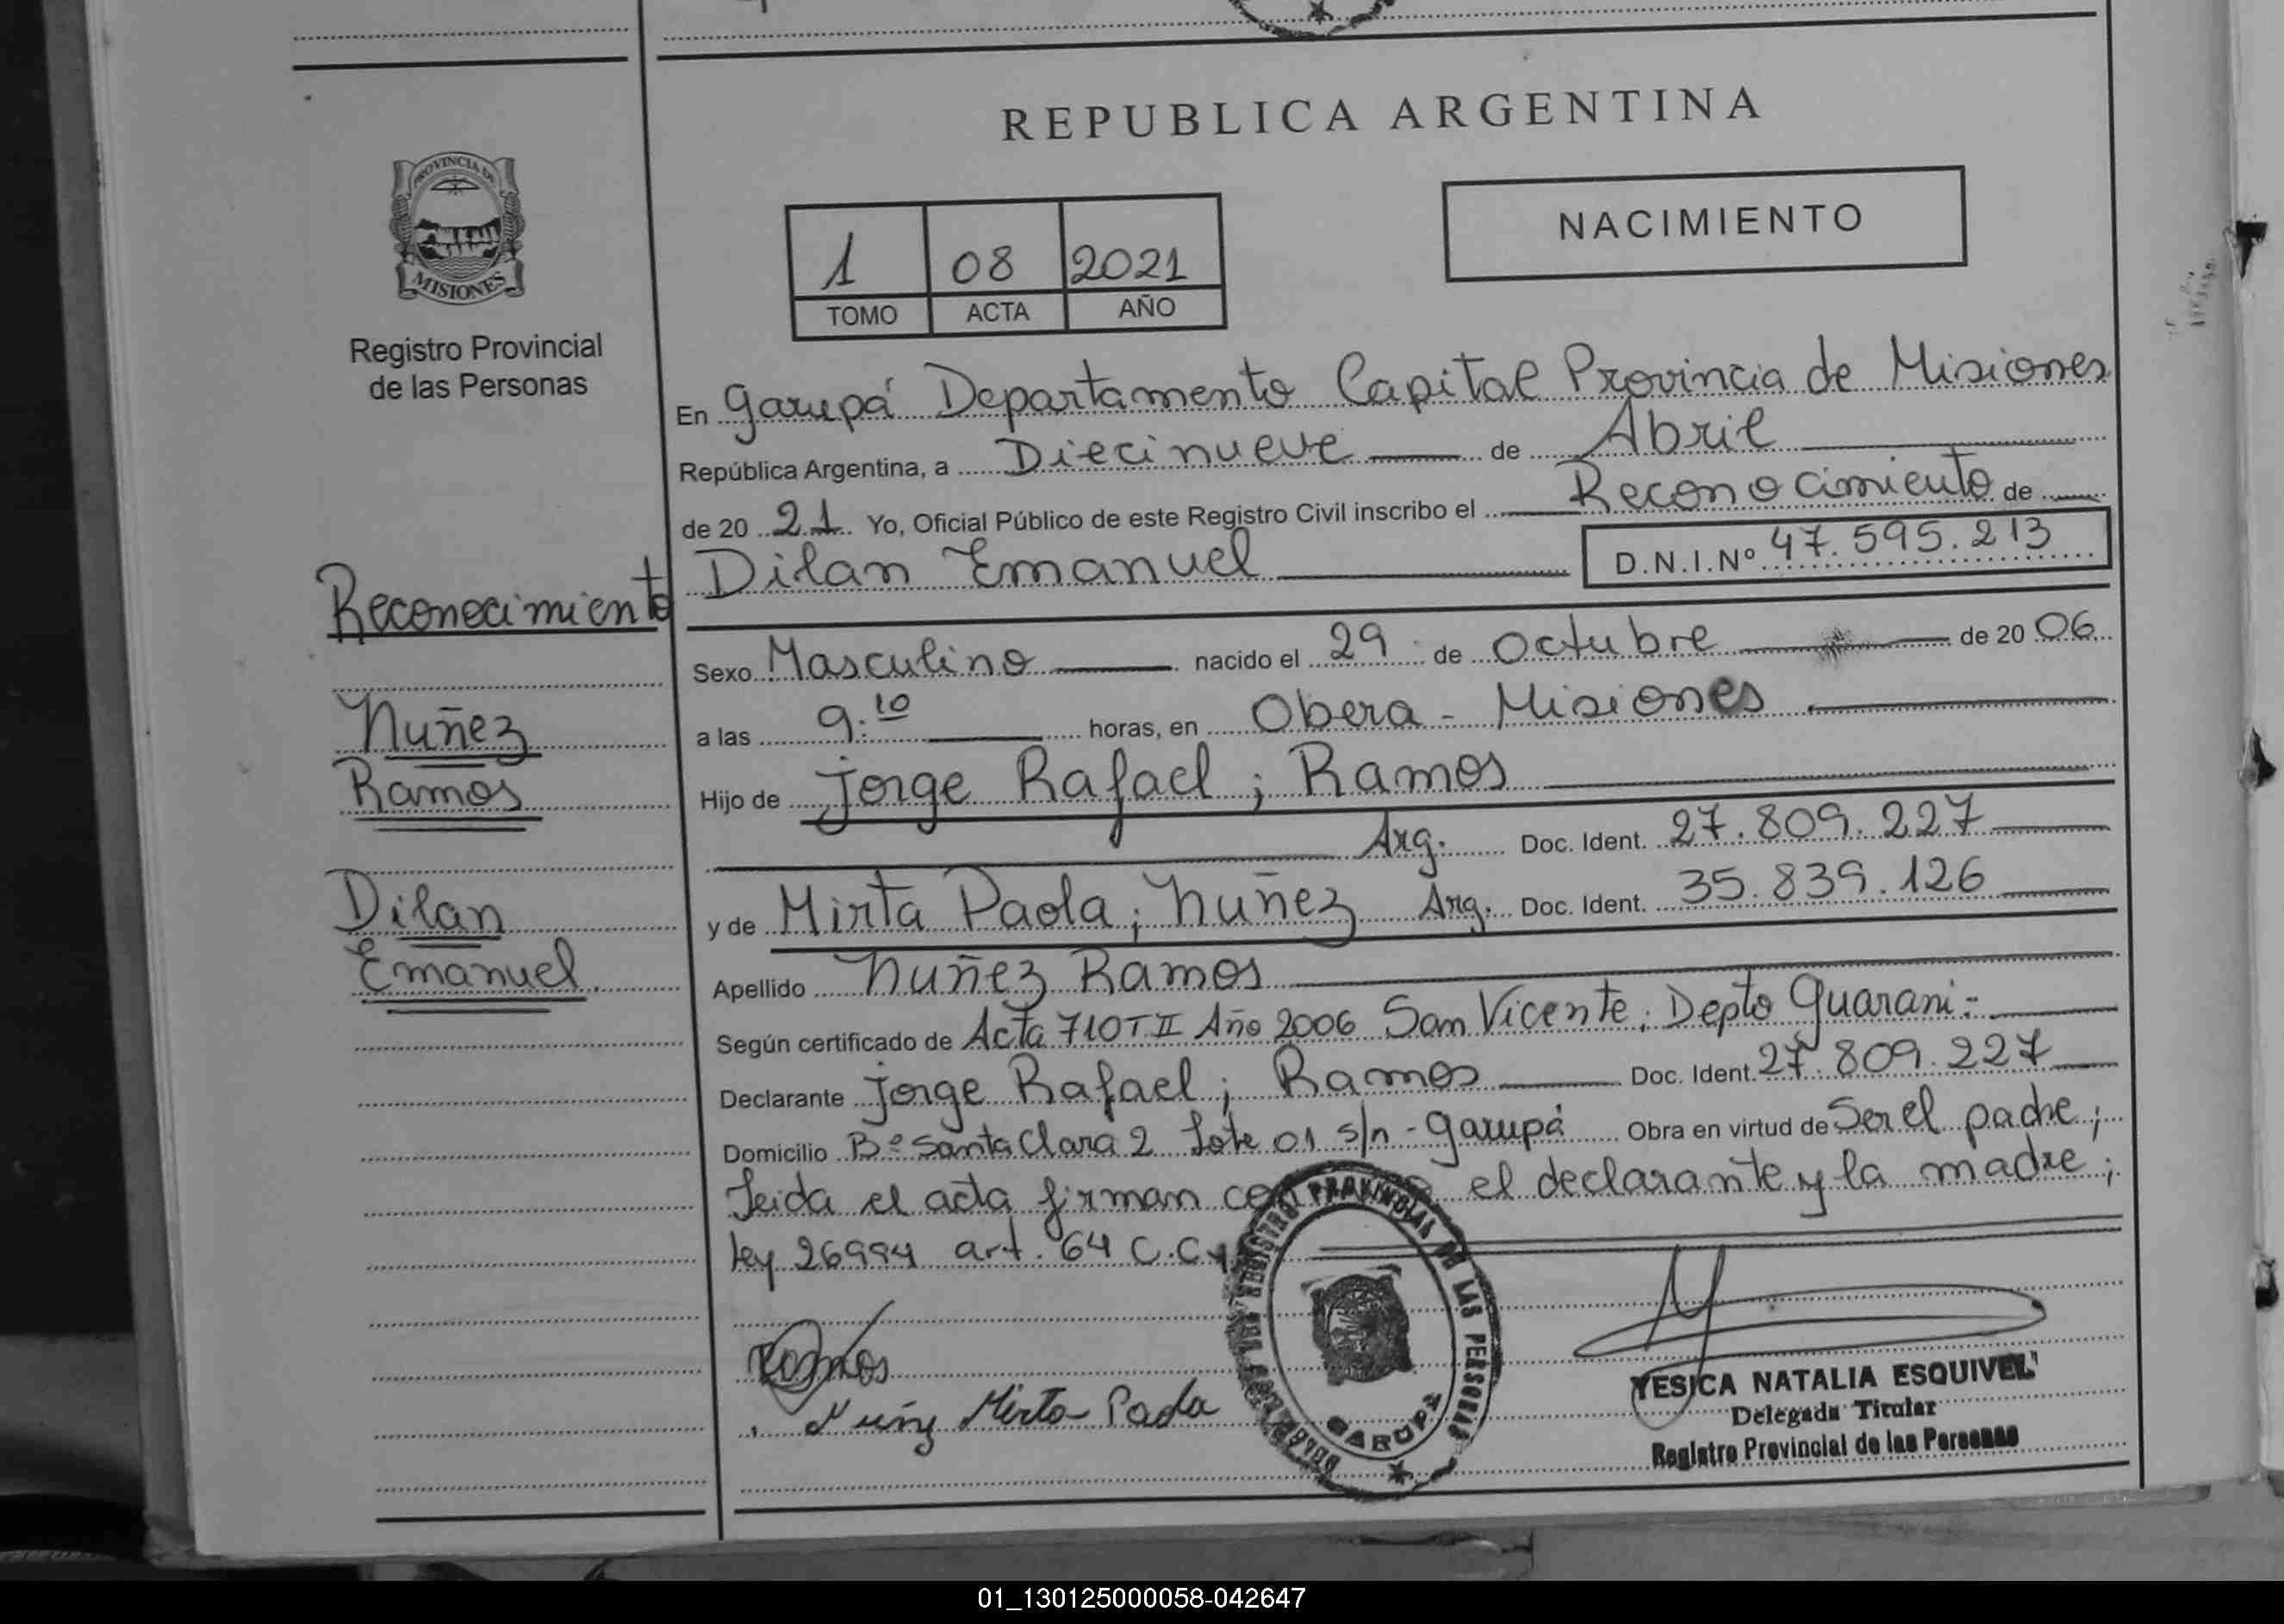 REPUBLICA ARGENTINA
PROVINCIA DE
MISIONES
Registro Provincial
de las Personas
NACIMIENTO
1 08 2021
TOMO ACTA AÑO
En Garupá Departamento Capital Provincia de Misiones
República Argentina, a Diecinueve de Abril
de 20 21 Yo, Oficial Público de este Registro Civil inscribo el Reconocimiento de
Dilan Emanuel D.N.I.Nº 47.595.213
Reconocimiento
Nuñez
Ramos
Dilan
Emanuel
Sexo Masculino nacido el 29 de Octubre de 20 06
a las 9:10 horas, en Obera - Misiones
Hijo de Jorge Rafael; Ramos
Arg. Doc. Ident. 27.809.227
y de Mirta Paola; Nuñez Arg. Doc. Ident. 35.839.126
Apellido Nuñez Ramos
Según certificado de Acta 710 T II Año 2006 San Vicente; Depto Guarani:
Declarante Jorge Rafael; Ramos Doc. Ident. 27.809.227
Domicilio Bº Santa Clara 2 Lote 01 s/n - Garupá Obra en virtud de Ser el padre;
Leida el acta firman el declarante y la madre;
Ley 26994 art. 64 C.C y
Ramos
Nuñez Mirta Paola
REGISTRO PROVINCIAL DE LAS PERSONAS
GARUPÁ
YESICA NATALIA ESQUIVEL
Delegada Titular
Registro Provincial de las Personas
01_130125000058-042647